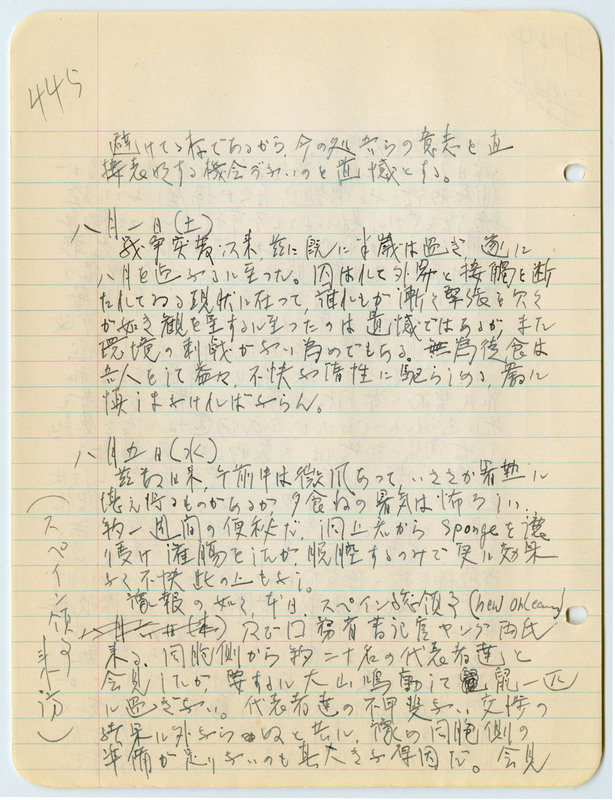 445
避けてる存であるから、今の処吾らの意志を直
接表明する機会がないのを遺憾とする。
八月一日(土)
戦争突発以来、茲に既に半歳は過ぎ、遂に
八月を迎ふるに至った。囚はれて外界と接触を断
たれてゐる現状に在って、誰れもが漸く緊張を欠く
が如き観を呈するに至ったのは遺憾ではあるが、また
環境の刺戟がない為めでもある。無為徒食は
吾人をして益々、不快や惰性に駆らしめる、厳に
慎しまなければならん。
八月五日(水)
茲数日来、午前中は微風あって、いささか暑熱に
堪え得るものがあるが、夕食後の暑気は怖ろしい。
約一週間の便秘だ、洞上君から spongeを譲
り受け灌腸をしたが、脱腔するのみで更に効果
なく不快此の上もなし。
(スペイン領事来訪)
豫報の如く、本日、スペイン総領事(New Orleans)
及び国務省書記官ヤング両氏
来る、同胞側から約二十名の代表者達と
会見したが、要するに大山鳴動して鼠一匹
に過ぎない。代表者達の不甲斐ない交渉の
結果に外ならぬと共に、豫め同胞側の
準備が足りないのも其大きな原因だ。会見